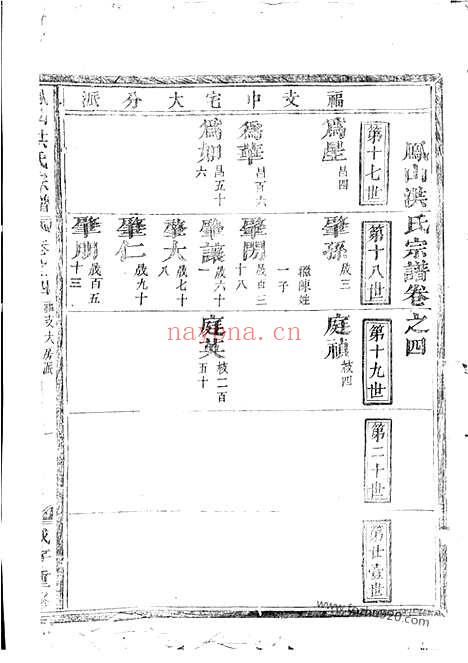 鳳山洪氏宗譜卷之四
福支中宅大分派
第十七世
為星 昌四
為華 昌百六
為如 昌五十六
第十八世
肇孫 歲三
繼陳姓一子
肇閔 歲百三十八
肇讓 歲六十一
肇大 歲七十八
肇仁 歲九十
肇朋 歲百五十三
第十九世
庭禎 枝四
庭英 枝二百五十
第二十世
第廿壹世
鳳山洪氏宗譜
卷之四
福支大房派
一
nayona.cn